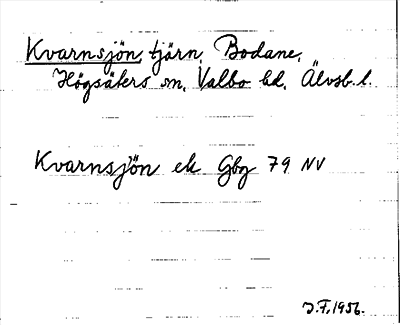 Kvarnsjön, tjärn, Bodane,
Högsäters sn, Valbo hd, Älvsb. l.
Kvarnsjön ek Gbg 79 NV
J.F. 1956.